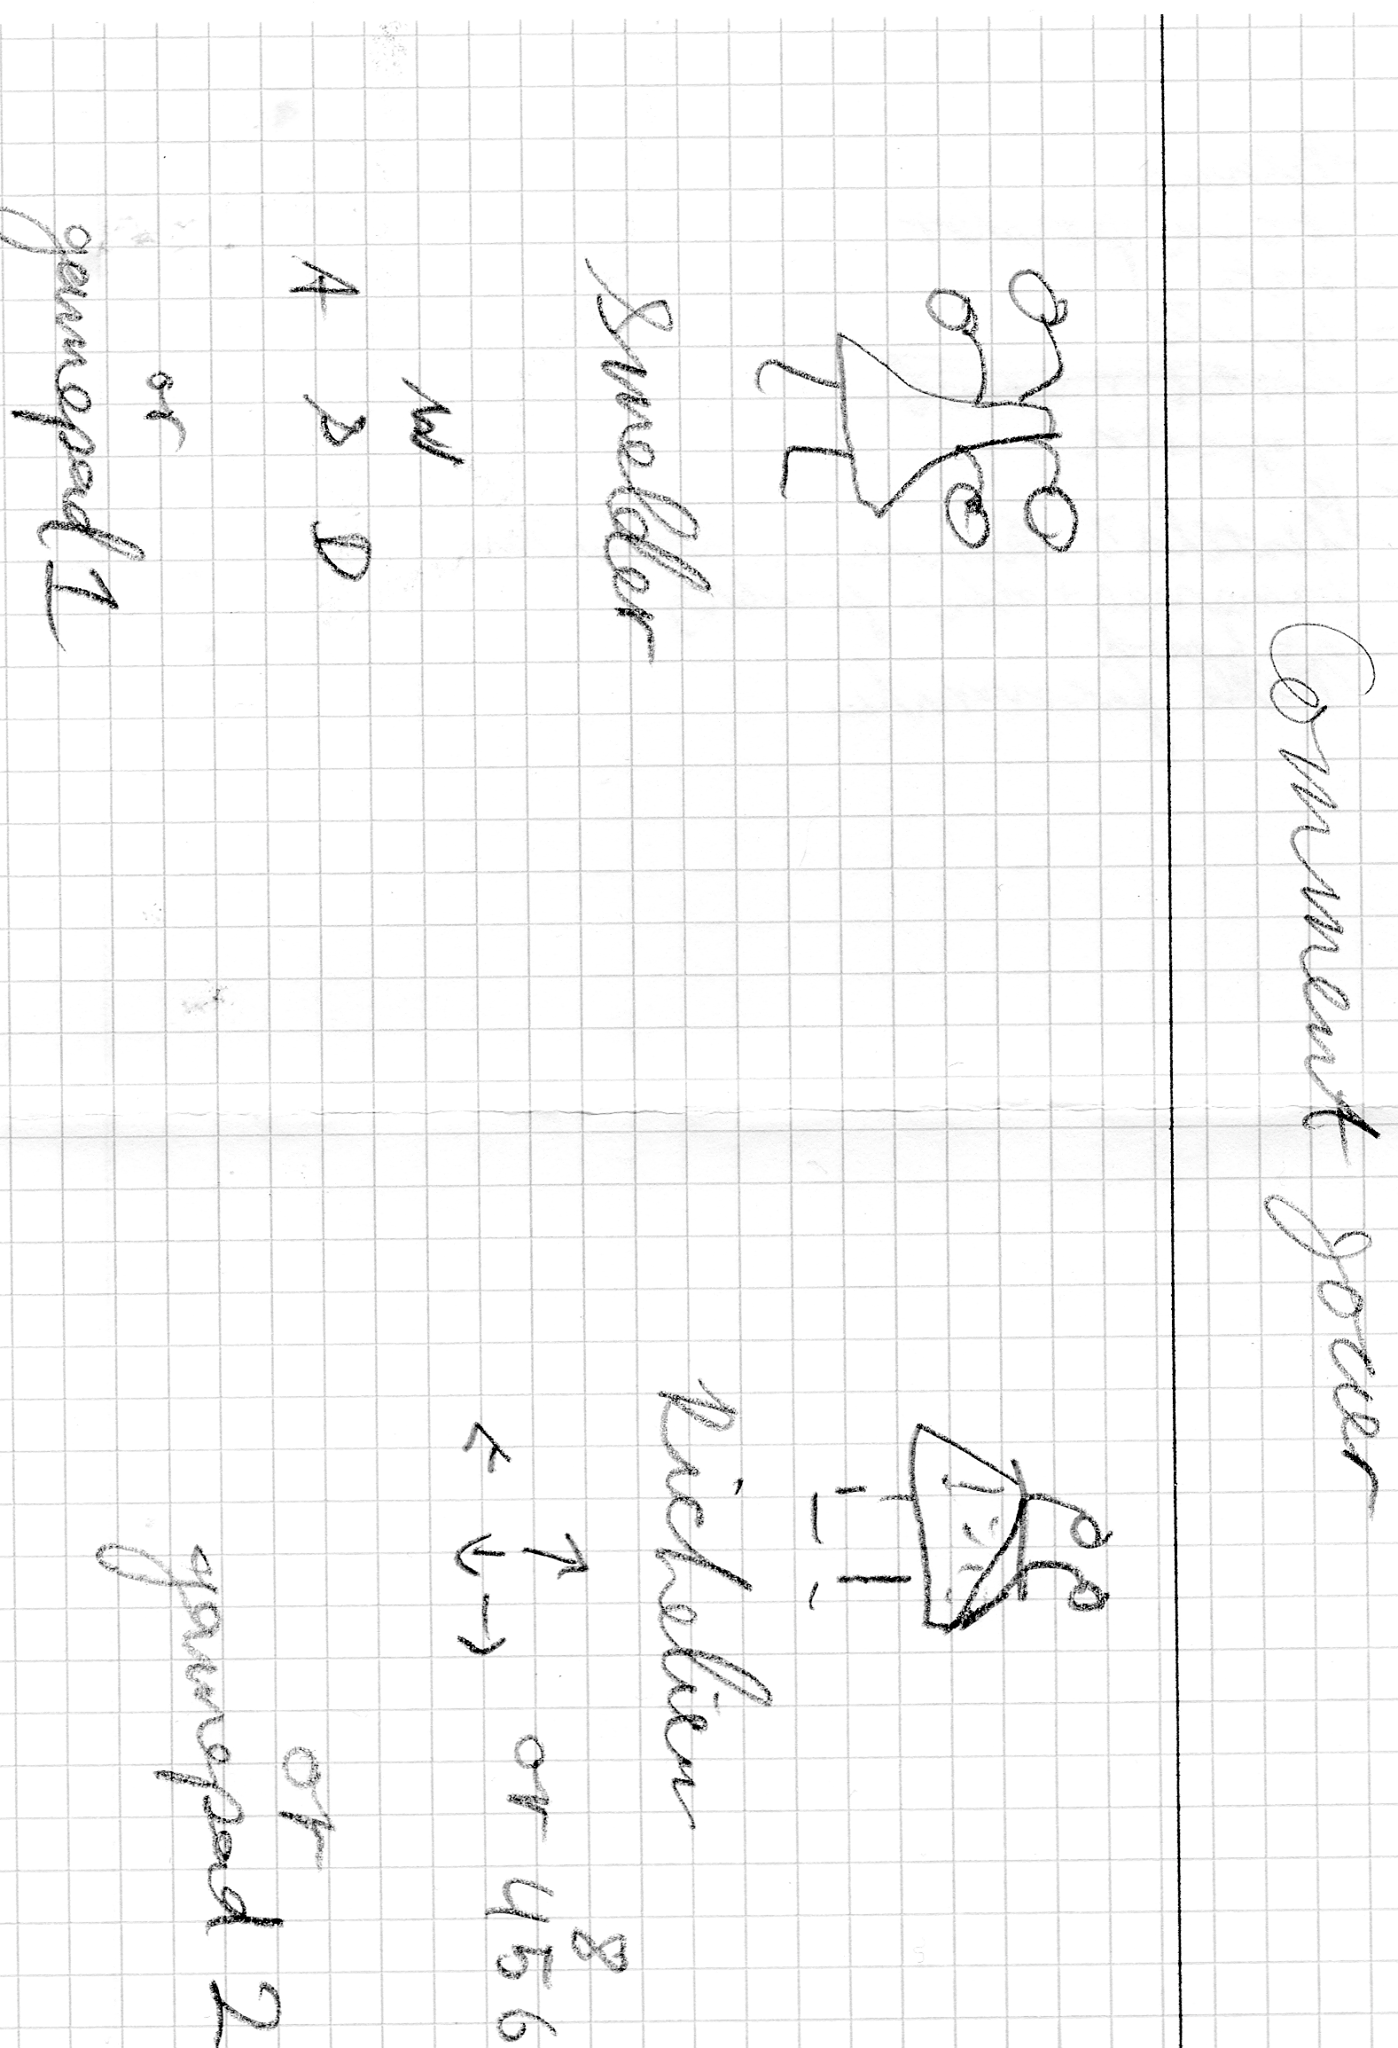 Comment jouer
Smelder
W
A S D
or
gamepad 1
Richelieu
↑ 8
← ↓ → or 4 5 6
or
gamepad 2